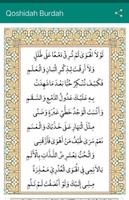 Qoshidah Burdah
لَوْلَا الْهَوَى لَمْ تُرِقْ دَمْعًا عَلَى طَلَلٍ
وَلَا أَرِقْتَ لِذِكْرِ الْبَانِ وَالْعَلَمِ
فَكَيْفَ تُنْكِرُ حُبًّا بَعْدَ مَا شَهِدَتْ
بِهِ عَلَيْكَ عُدُولُ الدَّمْعِ وَالسَّقَمِ
وَأَثْبَتَ الْوَجْدُ خَطَّيْ عَبْرَةٍ وَضَنًى
مِثْلَ الْبَهَارِ عَلَى خَدَّيْكَ وَالْعَنَمِ
نَعَمْ سَرَى طَيْفُ مَنْ أَهْوَى فَأَرَّقَنِي
وَالْحُبُّ يَعْتَرِضُ اللَّذَّاتِ بِالْأَلَمِ
يَا لَائِمِي فِي الْهَوَى الْعُذْرِيِّ مَعْذِرَةً
مِنِّي إِلَيْكَ وَلَوْ أَنْصَفْتَ لَمْ تَلُمِ